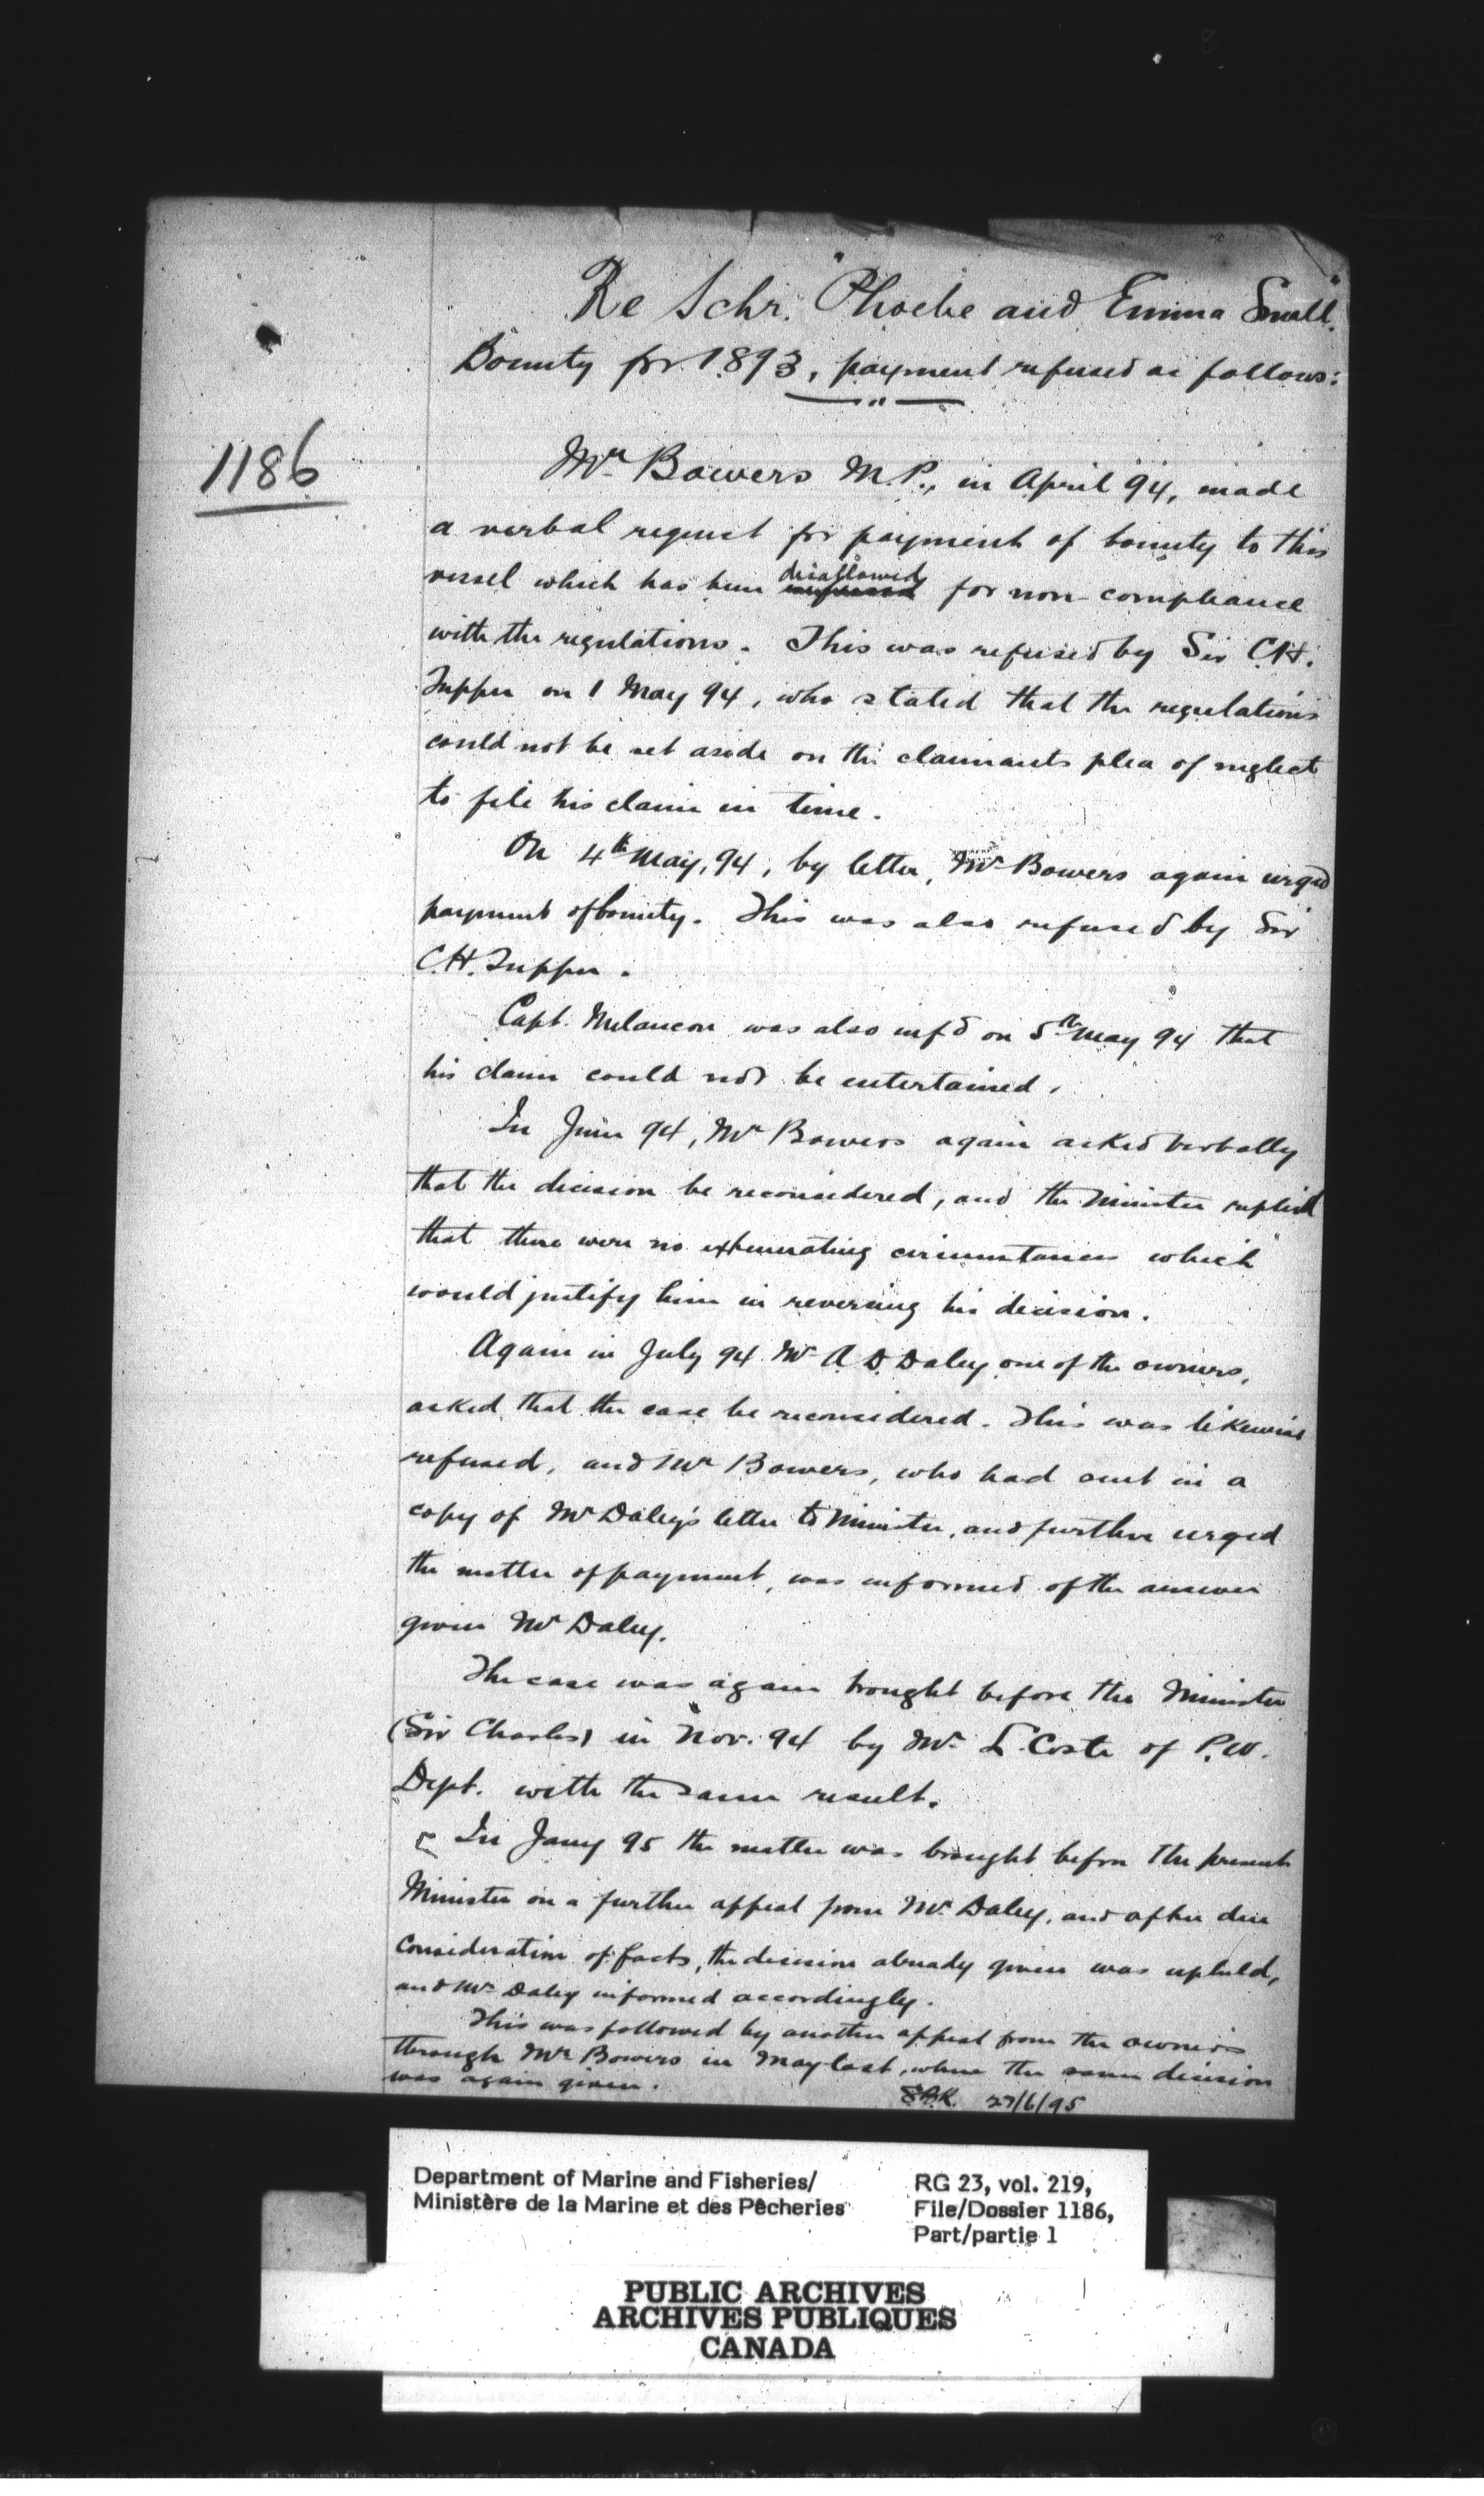 Re Schr. "Phoebe and Emma Small".
Bounty for 1893, payment refused as follows:
1186
Mr Bowers M.P., in April 94, made
a verbal request for payment of bounty to this
vessel which has been disallowed for non-compliance
with the regulations. This was refused by Sir C.H.
Tupper on 1 May 94, who stated that the regulations
could not be set aside on the claimants plea of neglect
to file his claim in time.
On 4th May, 94, by letter, Mr Bowers again urged
payment of bounty. This was also refused by Sir
C.H. Tupper.
Capt. Melancon was also inf'd on 5th May 94 that
his claim could not be entertained.
In June 94, Mr Bowers again asked verbally
that the decision be reconsidered, and the Minister replied
that there were no extenuating circumstances which
would justify him in reversing his decision.
Again in July 94 Mr A. D. Daley, one of the owners,
asked that the case be reconsidered. This was likewise
refused, and Mr Bowers, who had sent in a
copy of Mr Daley's letter to Minister, and further urged
the matter of payment, was informed of the answer
given Mr Daley.
The case was again brought before the Minister
(Sir Charles) in Nov. 94 by Mr L. Coste of P.W.
Dept. with the same result.
In Jany 95 the matter was brought before the present
Minister on a further appeal from Mr Daley, and after due
consideration of facts, the decision already given was upheld,
and Mr Daley informed accordingly.
This was followed by another appeal from the owners
through Mr Bowers in May last, when the same decision
was again given.
27/6/95
Department of Marine and Fisheries/
Ministère de la Marine et des Pêcheries
RG 23, vol. 219,
File/Dossier 1186,
Part/partie 1
PUBLIC ARCHIVES
ARCHIVES PUBLIQUES
CANADA